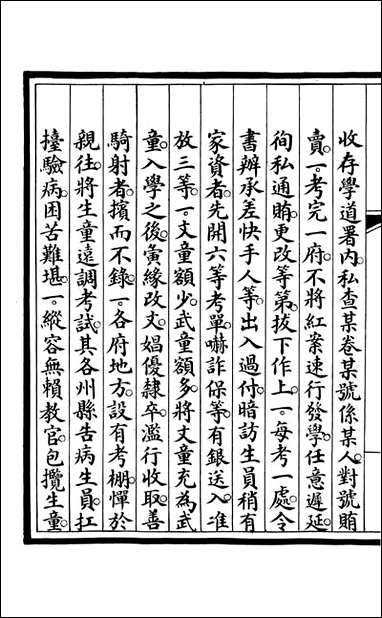 收存學道署內。私查某卷某號係某人。對號賄
賣。一。考完一府。不將紅案速行發學。任意遲延。
徇私通賄。更改等第。拔下作上。一。每考一處。令
書辦承差快手人等。出入過付。暗訪生員稍有
家資者。先開六等考單。嚇詐保等。有銀送入。准
放三等。一。文童額少。武童額多。將文童充為武
童。入學之後。寅緣改文。娼優隸卒。濫行收取。善
騎射者。擯而不錄。一。各府地方。設有考棚。憚於
親往。將生童遠調考試。其各州縣告病生員。扛
擡驗病。困苦難堪。一。縱容無賴教官。包攬生童